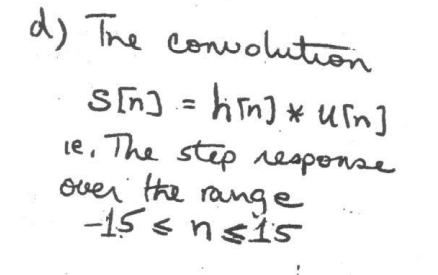 d) The convolution
s[n] = h[n] * u[n]
ie. The step response
over the range
-15 ≤ n ≤ 15